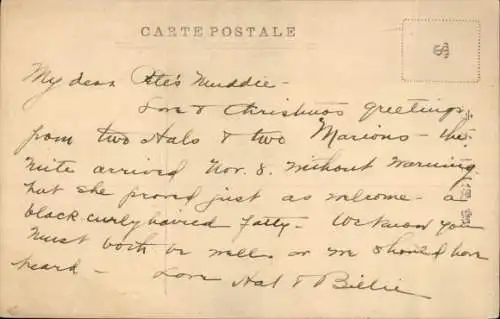 CARTE POSTALE
My dear Pete's Muddie -
Love & Christmas greetings
from two Hals & two Marions - the
mite arrived Nov. 8. without warning
but she proved just as welcome - a
black curly haired fatty. We know you
must both be well or we should have
heard - Love Hal & Billie